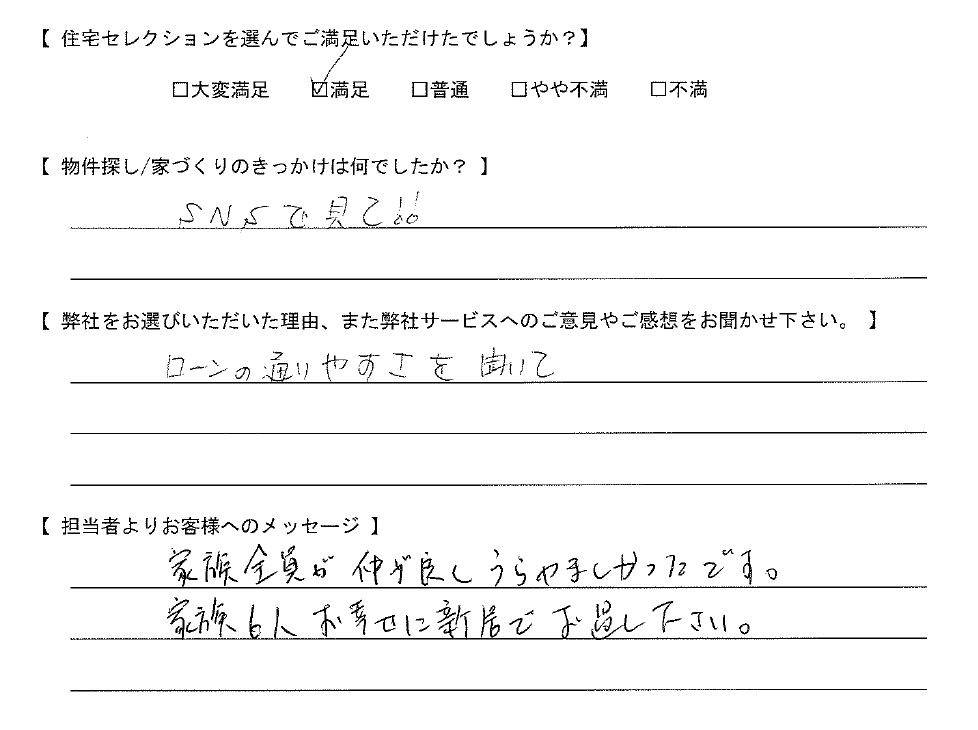 【 住宅セレクションを選んでご満足いただけたでしょうか？】
□大変満足 ☑満足 □普通 □やや不満 □不満
【 物件探し/家づくりのきっかけは何でしたか？ 】
SNSで見て!!
【 弊社をお選びいただいた理由、また弊社サービスへのご意見やご感想をお聞かせ下さい。 】
ローンの通りやすさを聞いて
【 担当者よりお客様へのメッセージ 】
家族全員が仲が良しうらやましかったです。
家族6人お幸せに新居でお過し下さい。